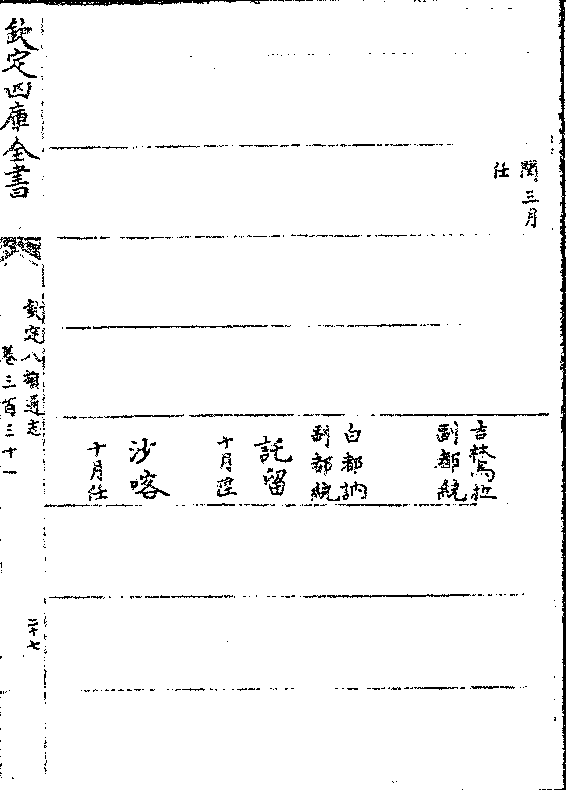 閏三月
任
吉林烏拉
副都統
白都訥
副都統
託留
十月陞
沙喀
十月任
欽定四庫全書
欽定八旗通志
卷三百三十一
二十七